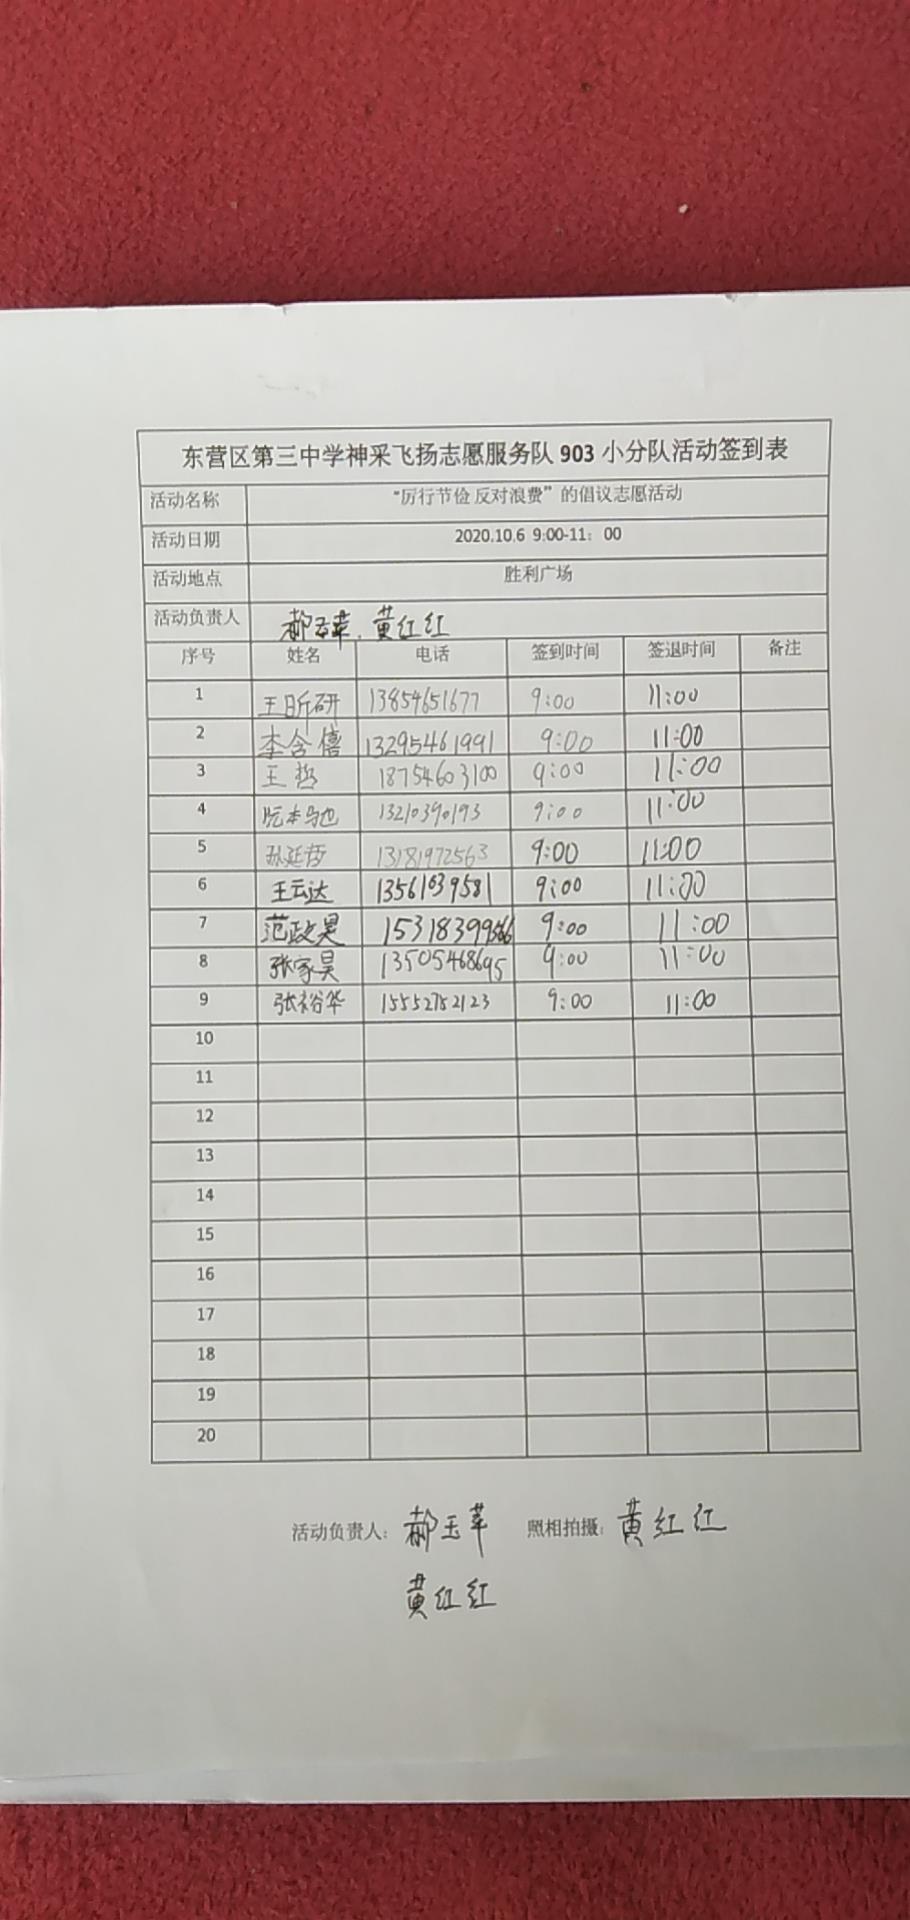 东营区第三中学神采飞扬志愿服务队 903 小分队活动签到表
活动名称 “厉行节俭 反对浪费”的倡议志愿活动
活动日期 2020.10.6 9:00-11：00
活动地点 胜利广场
活动负责人 郝玉苹、黄红红
序号 姓名 电话 签到时间 签退时间 备注
1 王昕研 13854651677 9:00 11:00
2 李含僖 13295461991 9:00 11:00
3 王哲 18754603100 9:00 11:00
4 阮本驰 13210390193 9:00 11:00
5 孙延哲 13181972563 9:00 11:00
6 王云达 13561039581 9:00 11:00
7 范政昊 9:00 11:00
8 张家昊 13505468695 9:00 11:00
9 张裕华 15552752123 9:00 11:00
10
11
12
13
14
15
16
17
18
19
20
活动负责人：郝玉苹 照相拍摄：黄红红
黄红红